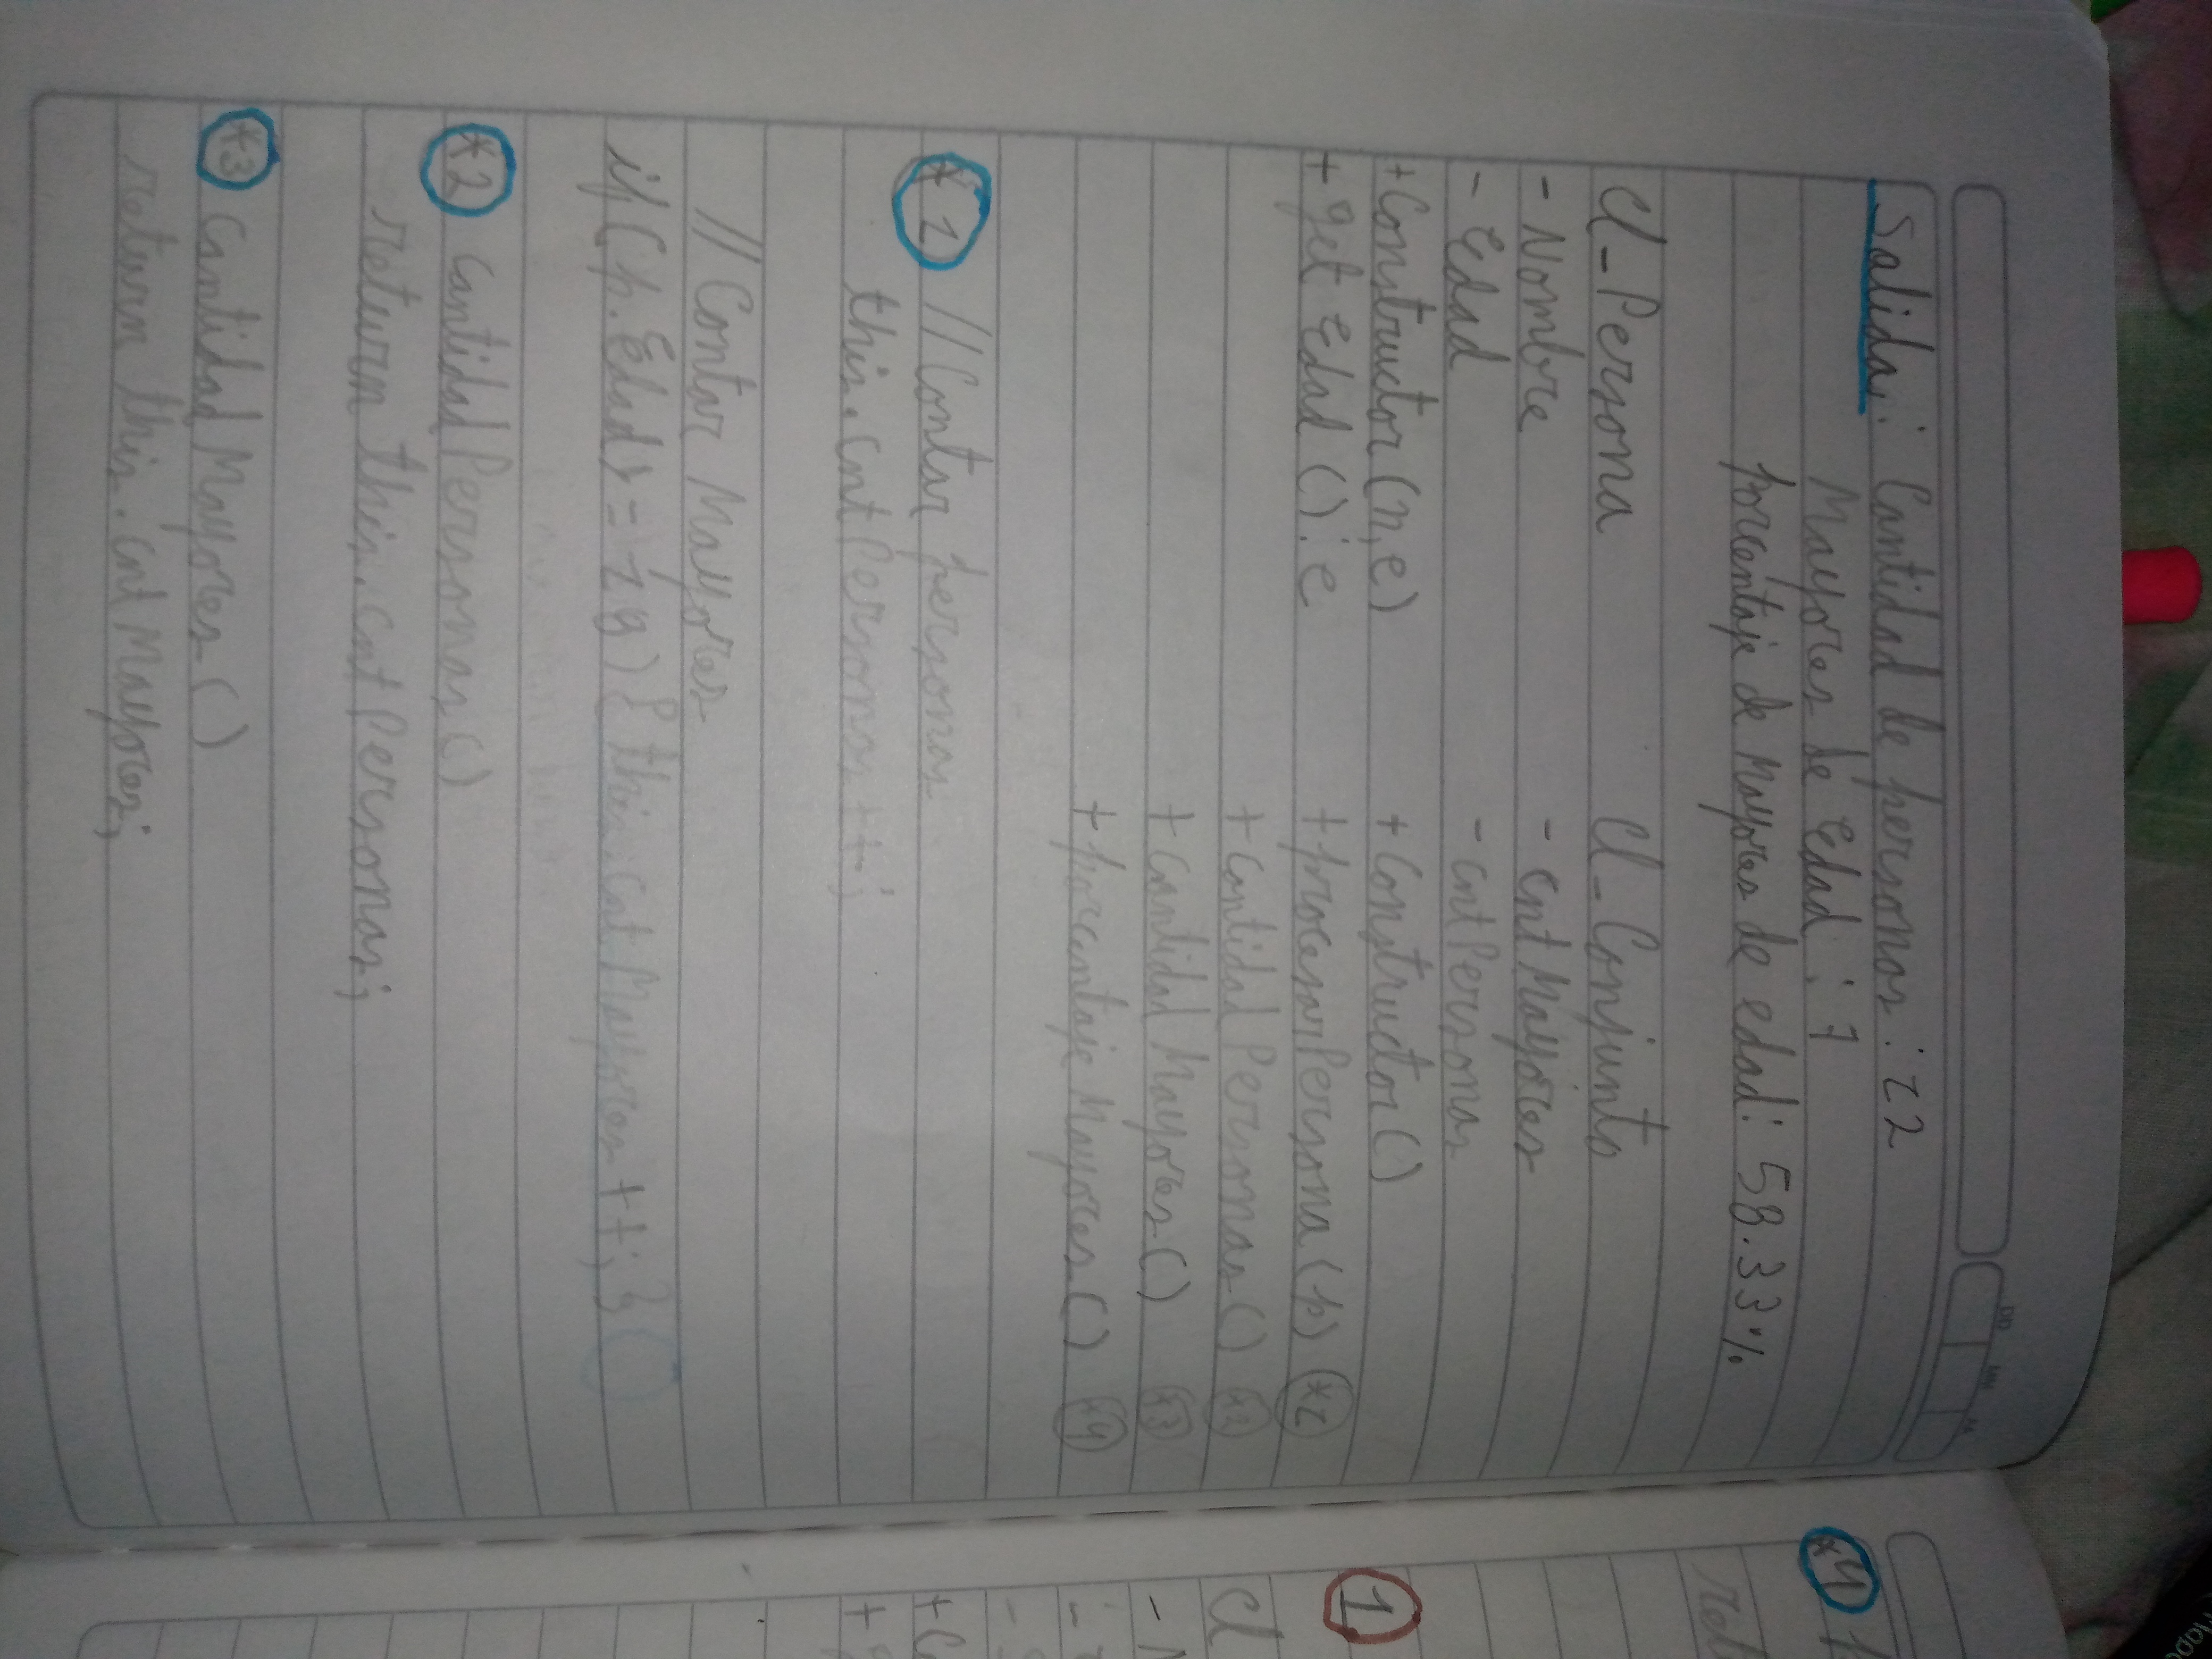 DD MM AA
Salida: Cantidad de personas: 12
Mayores de Edad: 7
Porcentaje de Mayores de edad: 58.33%
Cl_Persona
- Nombre
- Edad
+ Constructor (n,e)
+ get Edad (): e
Cl_Conjunto
- cntMayores
- cntPersonas
+ Constructor ()
+ procesarPersona (p) *1
+ CantidadPersonas () *2
+ Cantidad Mayores () *3
+ porcentaje Mayores () *4
*1 // Contar personas
this.cntPersonas++;
// Contar Mayores
if (p.Edad >= 18) { this.cntMayores++; }
*2 CantidadPersonas ()
return this.cntPersonas;
*3 CantidadMayores ()
return this.cntMayores;
*4
ret
1
Cl
-
-
-
+ C
+